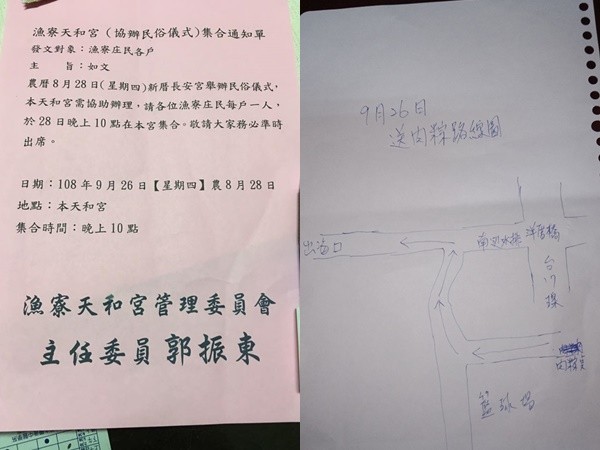 漁寮天和宮（協辦民俗儀式）集合通知單
發文對象：漁寮庄民各戶
主　　旨：如文
農曆8月28日(星期四)新厝長安宮舉辦民俗儀式，
本天和宮需協助辦理，請各位漁寮庄民每戶一人，
於28日晚上10點在本宮集合。敬請大家務必準時
出席。
日期：108年9月26日【星期四】農8月28日
地點：本天和宮
集合時間：晚上10點
漁寮天和宮管理委員會
主任委員郭振東
9月26日
送肉粽路線圖
出海口
洋厝橋
台17線
籃球場